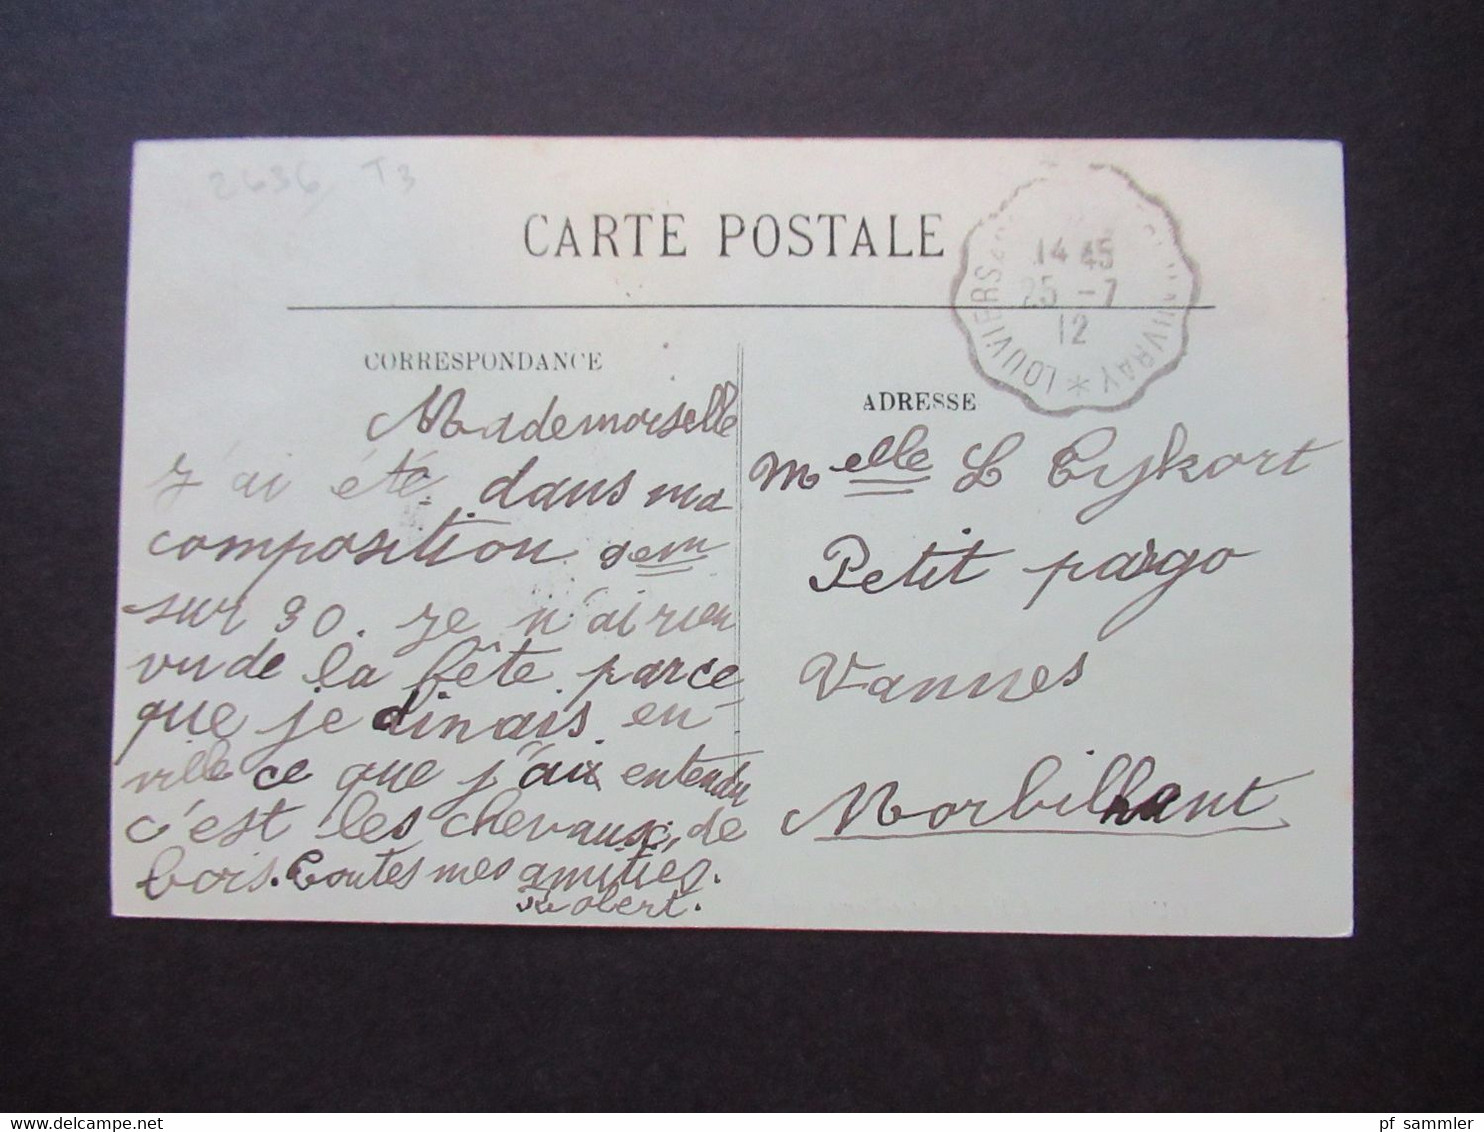 2636 T3
CARTE POSTALE
14 45
25 -7
12
LOUVIERS
CORRESPONDANCE
ADRESSE
Mademoiselle
J'ai été dans ma
composition 9em
sur 30. Je n'ai rien
vu de la fête parce
que je dinais en
ville ce que j'aix entendu
c'est les chevaux, de
bois. Toutes mes amitiés.
Robert.
Melle L Eyskort
Petit pargo
Vannes
Morbilhant
pf sammler